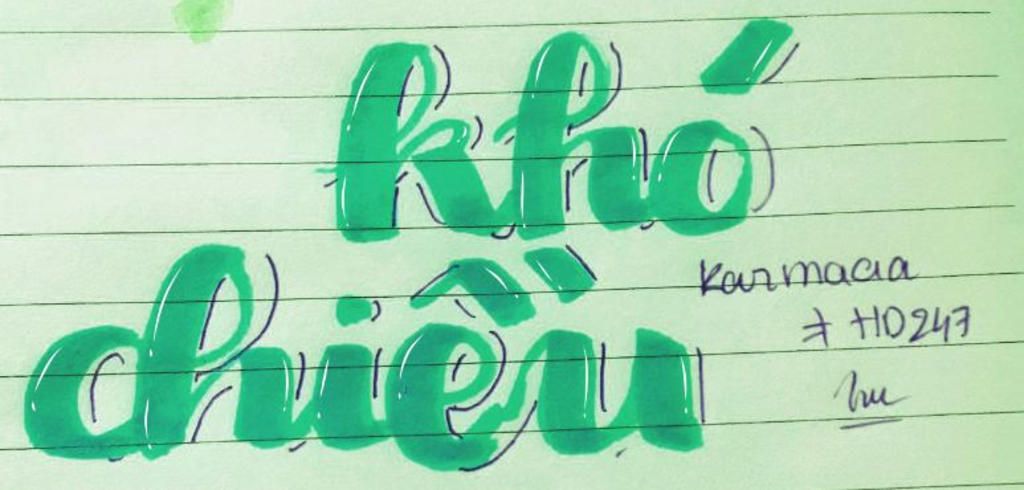 khó
chiều
Karmacia
# HD247